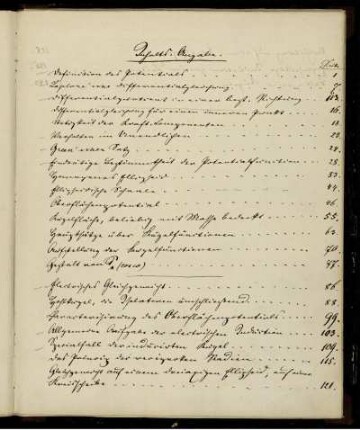 Inhalts-Angabe.
Seite.
Definition des Potentials 1
Laplace'sche Differentialgleichung 7.
Differentialquotient in einer best. Richtung
Differentialgleichung für einen inneren Punkt 16.
Stetigkeit der Kraft-Componenten 18.
Verhalten im Unendlichen 22.
Green'scher Satz 24.
Eindeutige Bestimmtheit der Potentialfunction 28.
Homogenes Ellipsoid
Ellipsoidische Schaale 44.
Oberflächenpotential 46.
Kugelfläche, beliebig mit Masse bedeckt 55.
Hauptsätze über Kugelfunctionen 63.
Aufstellung der Kugelfunctionen 70.
Gestalt von Pn
Electrisches Gleichgewicht
Hohlkugel, die Isolatoren einschliessend 88.
Charakterisirung des Oberflächenpotentials 99.
Allgemeine Aufgabe der electrischen Induction 103.
Spezialfall der inducirten Kugel 109.
Das Prinzip der reciproken Radien 115.
Gleichgewicht auf einem dreiaxigen Ellipsoid, auf einer
Kreisscheibe 121.